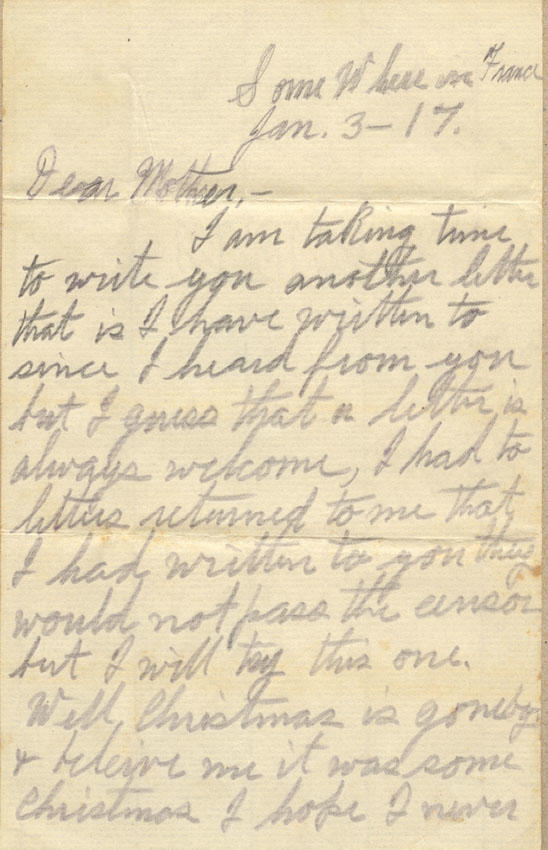 Some Where in France
Jan. 3-17.
Dear Mother,-
I am taking time
to write you another letter
that is I have written to
since I heard from you
but I guess that a letter is
always welcome, I had to
letters returned to me that
I had written to you they
would not pass the censor
but I will try this one.
Well, Christmas is goneby
& beleive me it was some
Christmas I hope I never